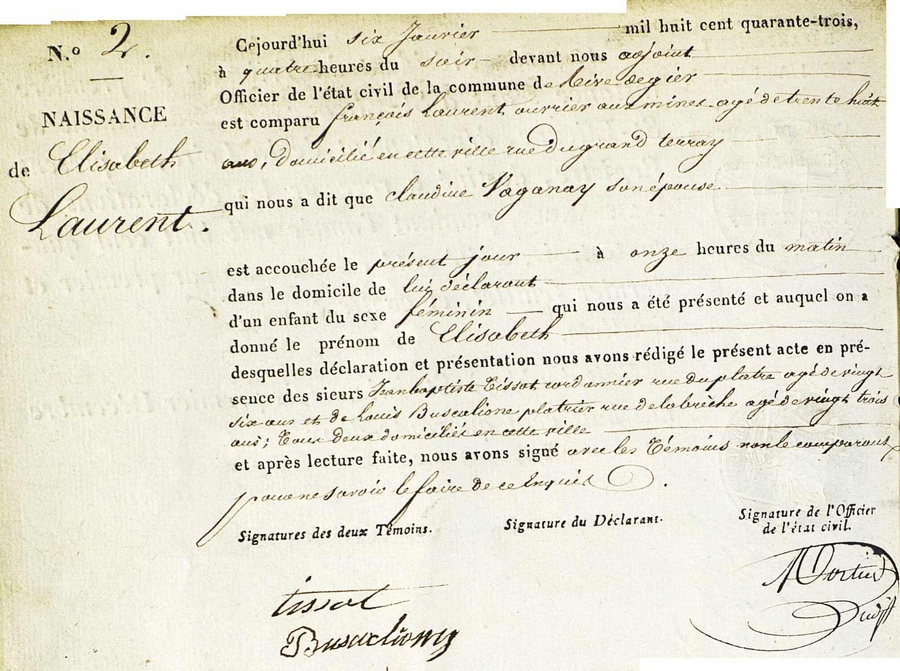 N.º 2.
NAISSANCE
de Elisabeth
Laurent.
Cejourd'hui six Janvier mil huit cent quarante-trois,
à quatre heures du soir devant nous adjoint
Officier de l'état civil de la commune de Rive de gier
est comparu françois Laurent ouvrier aux mines agé de trente huit
ans, domicilié en cette ville rue du grand terray
qui nous a dit que claudine Vaganay son épouse
est accouchée le présent jour à onze heures du matin
dans le domicile de lui déclarant
d'un enfant du sexe féminin qui nous a été présenté et auquel on a
donné le prénom de Elisabeth
desquelles déclaration et présentation nous avons rédigé le présent acte en pré-
sence des sieurs Jean baptiste Tissot cordonnier rue du platre agé de vingt
six ans et de Louis Buscalione platrier rue de la brèche agé de vingt trois
ans; Tous deux domiciliés en cette ville
et après lecture faite, nous avons signé avec les Témoins non le comparant
pour ne savoir le faire de ce Enquis.
Signatures des deux Témoins.
Signature du Déclarant.
Signature de l'Officier
de l'état civil.
tissot